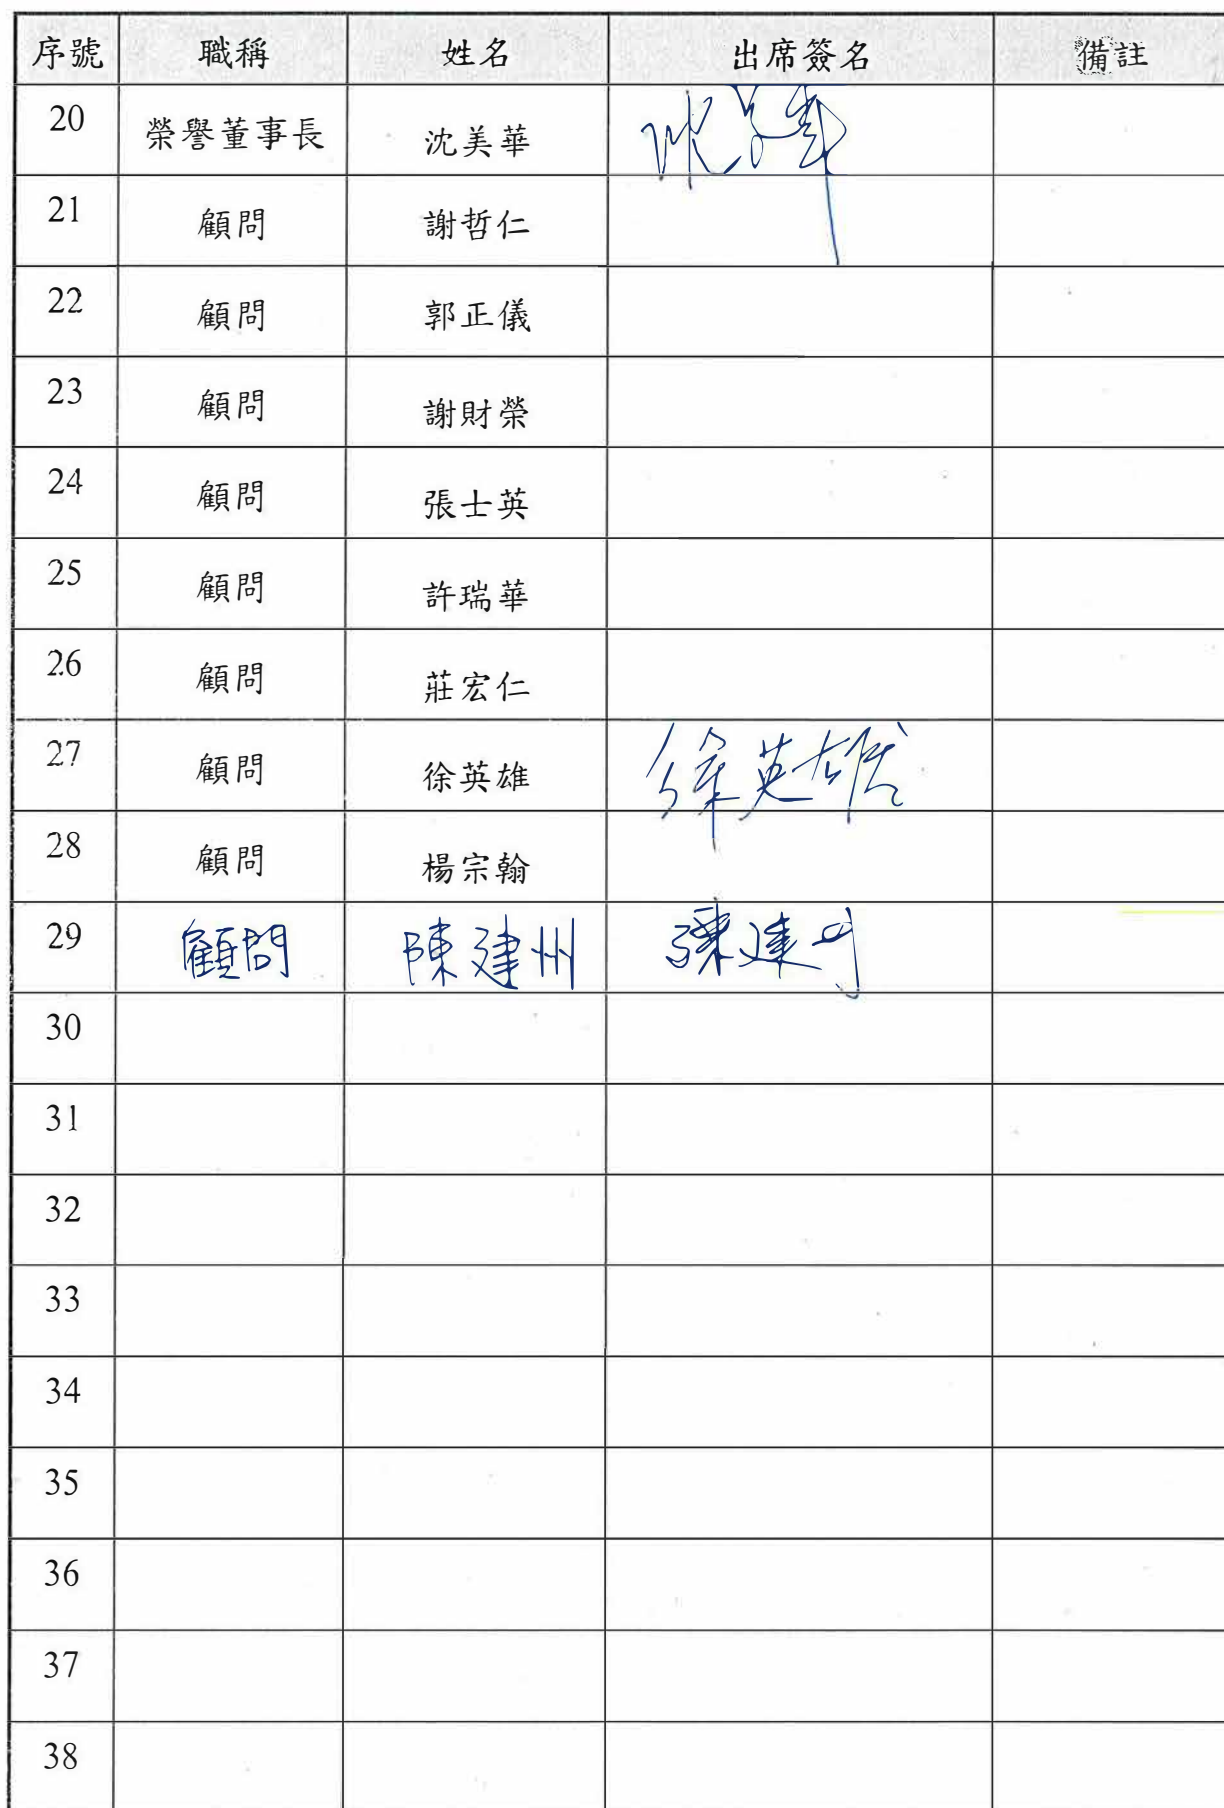 序號 職稱 姓名 出席簽名 備註
20 榮譽董事長 沈美華 沈美華
21 顧問 謝哲仁
22 顧問 郭正儀
23 顧問 謝財榮
24 顧問 張士英
25 顧問 許瑞華
26 顧問 莊宏仁
27 顧問 徐英雄 徐英雄
28 顧問 楊宗翰
29 顧問 陳建州 陳建州
30
31
32
33
34
35
36
37
38